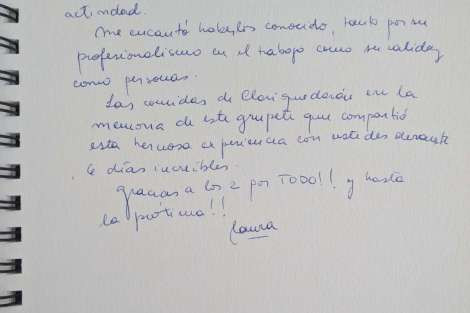 actividad.
Me encantó haberlos conocido, tanto por su
profesionalismo en el trabajo como su calidez
como personas.
Las comidas de Clari quedarán en la
memoria de este grupete que compartió
esta hermosa experiencia con ustedes durante
6 días increíbles.
Gracias a los 2 por TODO!! y hasta
la próxima!!
Laura